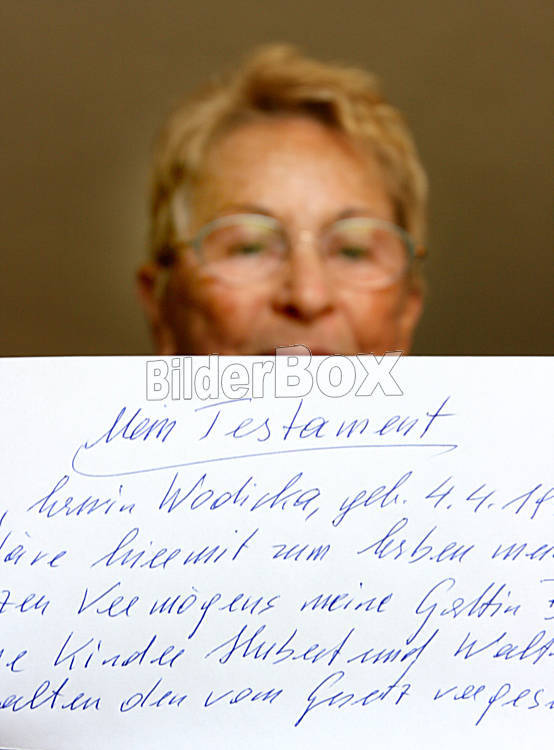 BilderBOX
Mein Testament
, Erwin Wodicka, geb. 4.4.19
läre hiermit zum Erben mei
zen Vermögens meine Gattin
e Kinder Hubert und Walt
alten den vom Gesetz vorges